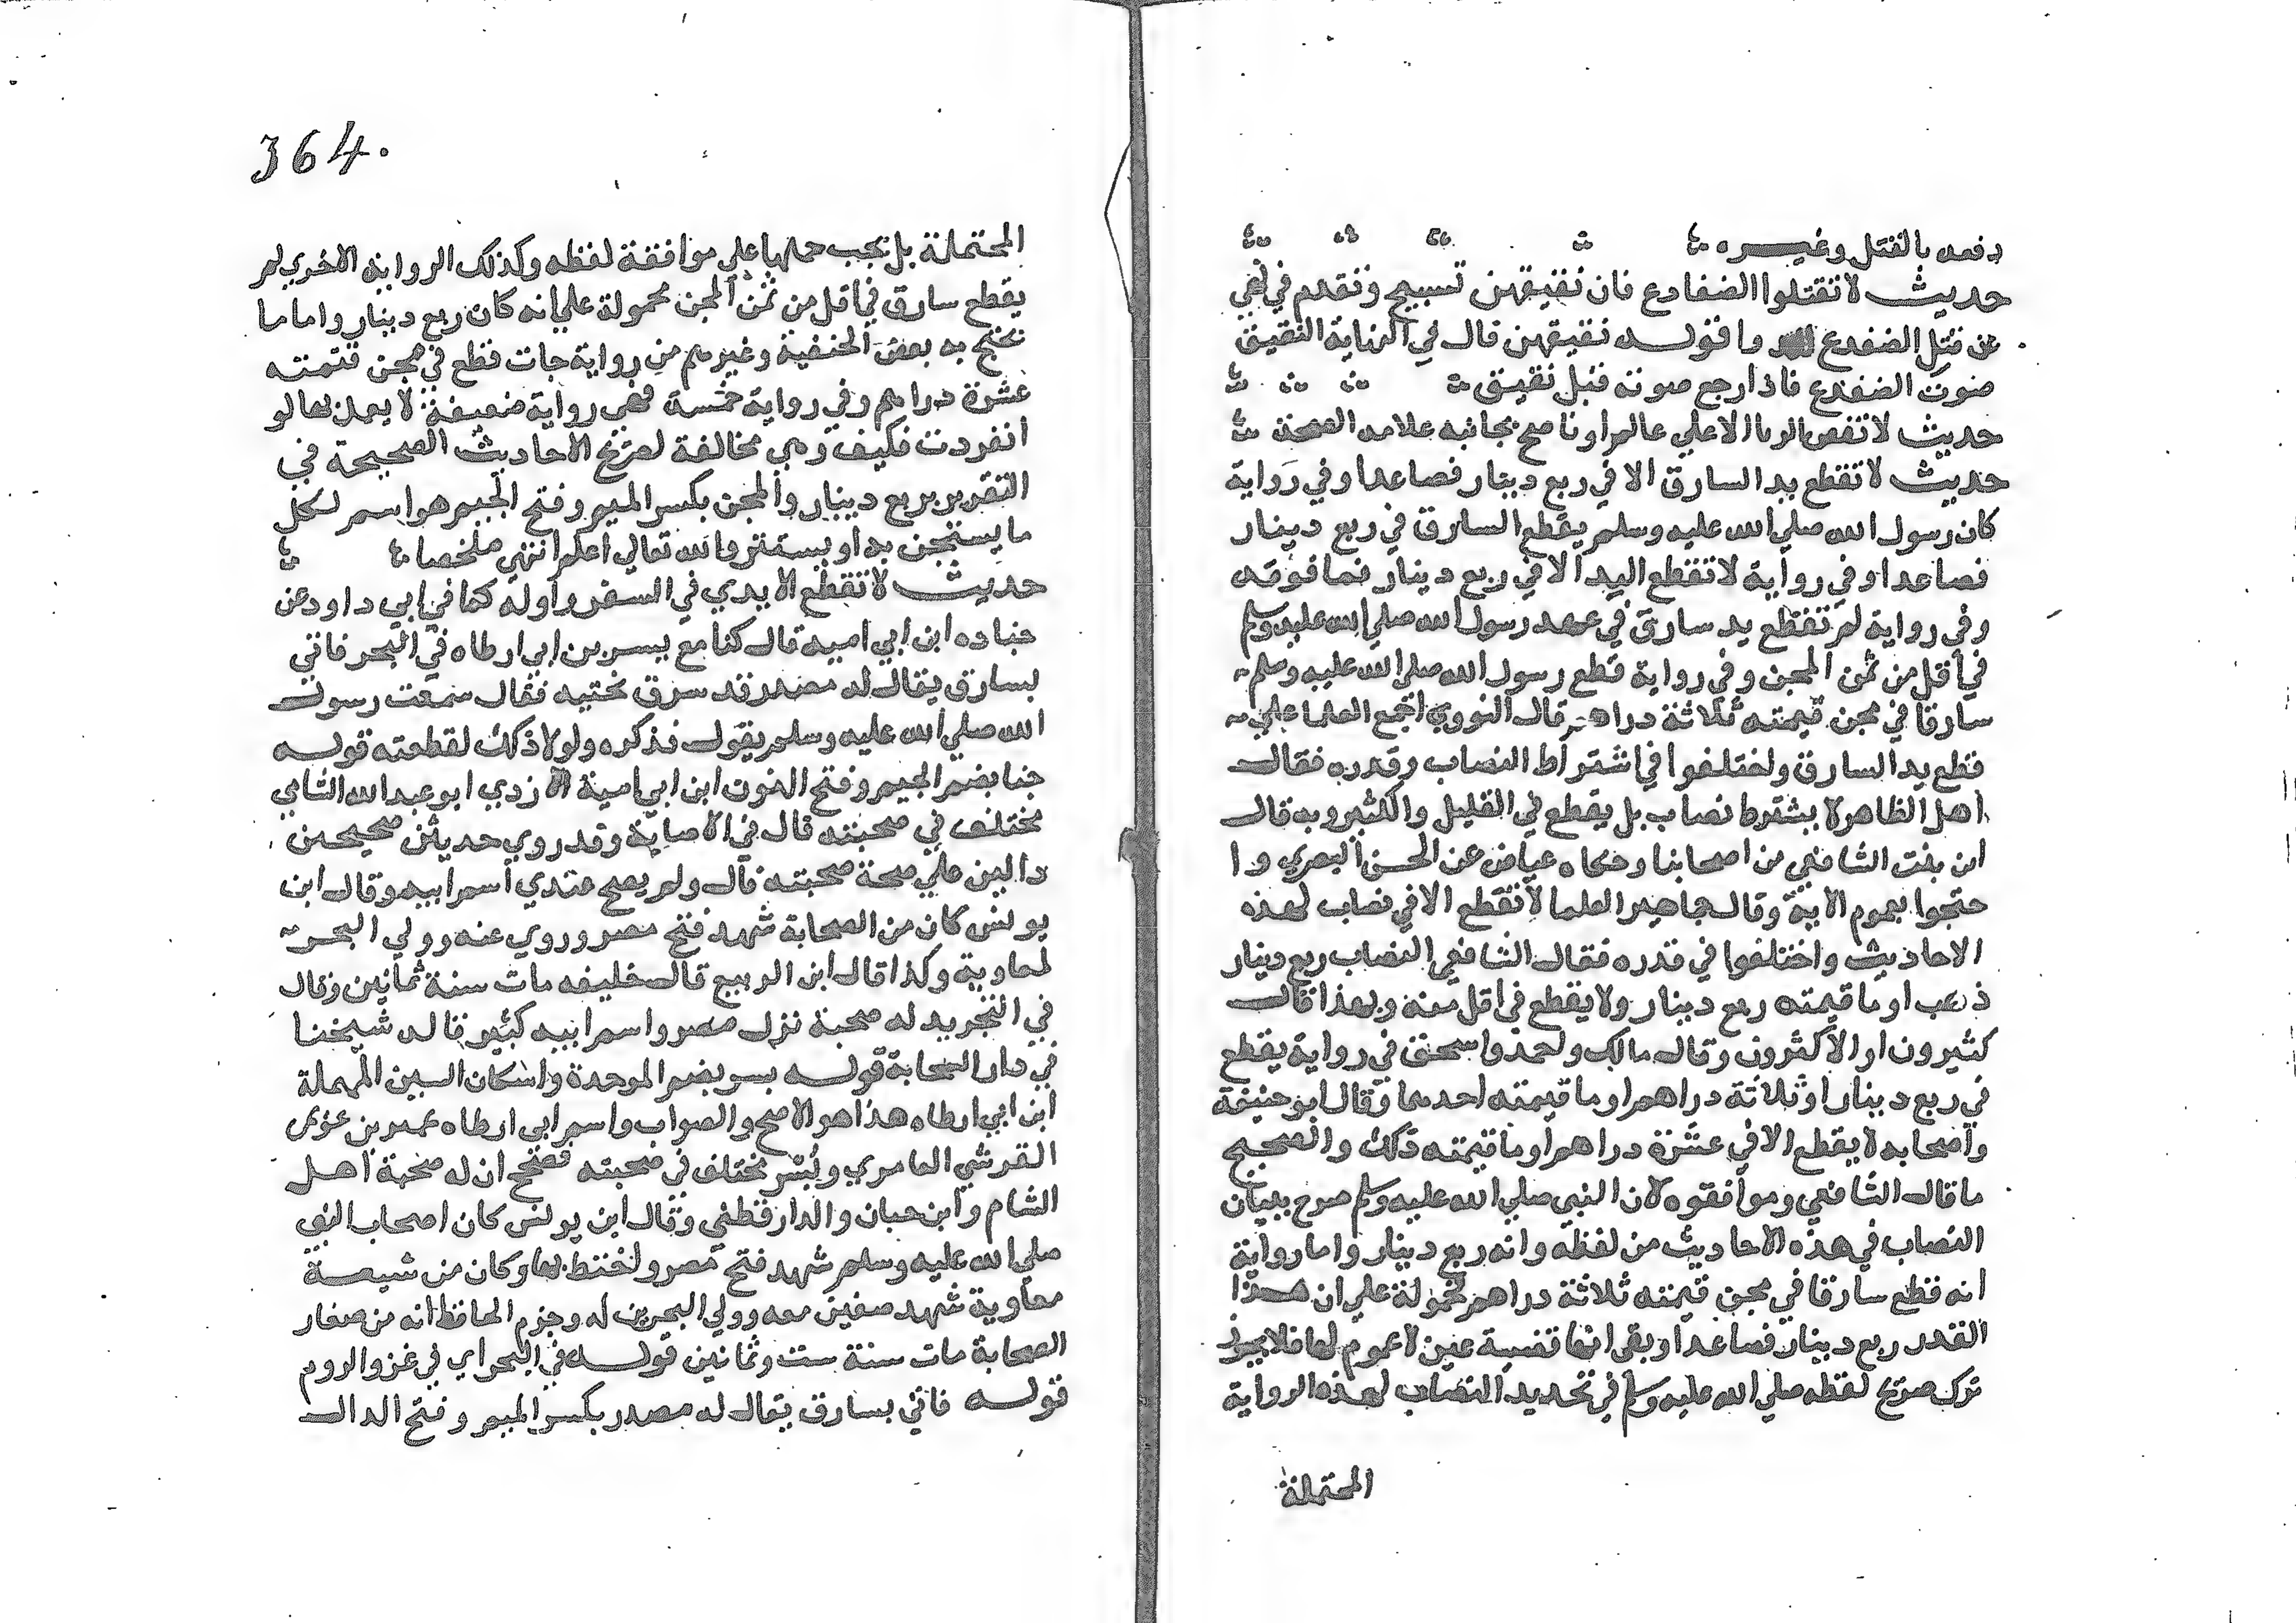 دفعه بالقتل وغيره
حديث لا تقتلوا الضفادع فان نقيقهن تسبيح وتقدم في نهي
عن قتل الضفدع واقوله نقيقهن قال في النهاية النقيق
صوت الضفدع فاذا رجع صوته قيل نقيق
حديث لا تقص الرويا الا علي عالم او ناصح بجانبه علامه الصحة
حديث لا تقطع يد السارق الا في ربع دينار فصاعدا وفي رواية
كان رسول الله صلي الله عليه وسلم يقطع السارق في ربع دينار
فصاعدا وفي رواية لا تقطع اليد الا في ربع دينار فما فوقه
وفي رواية لم تقطع يد سارق في عهد رسول الله صلي الله عليه وسلم
في اقل من ثمن المجن وفي رواية قطع رسول الله صلي الله عليه وسلم
سارقا في مجن قيمته ثلاثة دراهم قال النووي اجمع العلما علي
قطع يد السارق واختلفوا في اشتراط النصاب وقدره فقال
اهل الظاهر لا يشترط نصاب بل يقطع في القليل والكثير وبه قال
ابن بنت الشافعي من اصحابنا وحكاه عياض عن الحسن البصري وا
حتجوا بعموم الاية وقال جماهير العلما لا تقطع الا في نصاب لهذه
الاحاديث واختلفوا في قدره فقال الشافعي النصاب ربع دينار
ذهب او ما قيمته ربع دينار ولا يقطع في اقل منه وبهذا قال
كثيرون او الاكثرون وقال مالك واحمد واسحق في رواية يقطع
في ربع دينار او ثلاثة دراهم او ما قيمته احدهما وقال ابو حنيفة
واصحابه لا يقطع الا في عشرة دراهم او ما قيمته ذلك والصحيح
ما قال الشافعي وموافقوه لان النبي صلي الله عليه وسلم صرح ببيان
النصاب في هذه الاحاديث من لفظه وانه ربع دينار واما رواية
انه قطع سارقا في مجن قيمته ثلاثة دراهم محمولة علي ان هذا
القدر ربع دينار فصاعدا وبقي انها قضية عين لا عموم لها فلا يجوز
ترك صريح لفظه صلي الله عليه وسلم في تحديد النصاب لهذه الرواية
المحتملة
364.
المحتملة بل يجب حملها علي موافقة لفظه وكذلك الرواية الاخري لم
يقطع سارق في اقل من ثمن المجن محمولة علي انه كان ربع دينار واما ما
يحتج به بعض الحنفية وغيرهم من رواية جات قطع في مجن قيمته
عشرة دراهم وفي رواية خمسة فهي رواية ضعيفة لا يعمل بها لو
انفردت فكيف وهي مخالفة لصريح الاحاديث الصحيحة في
التقرير بربع دينار والمجن بكسر الميم وفتح الجيم هو اسم لكل
ما يستجن به او يستتر والله تعالي اعلم انتهي ملخصا
حديث لا تقطع الايدي في السفر واوله كما في ابي داود عن
جناده ابن ابي اميه قال كنا مع بسر بن ابي ارطاه في البحر فاتي
بسارق يقال له مصدر قد سرق بختيه فقال سمعت رسول
الله صلي الله عليه وسلم يقول فذكره ولولا ذلك لقطعته قوله
جنا بضم الجيم وفتح النون ابن ابي امية الازدي ابو عبد الله الشامي
مختلف في صحبته قال في الاصابة وقد روي حديثن صحيحين
دالين علي صحة صحبته قال ولم يصح عندي اسم ابيه وقال ابن
يونس كان من الصحابة شهد فتح مصر وروي عنه وولي البحر
لمعاوية وكذا قال ابن الربيع قال خليفه مات سنة ثمانين وقال
في التجريد له صحبة نزل مصر واسم ابيه كثير قاله شيخنا
في دار الصحابة قوله بسر بضم الموحدة واسكان السين المهملة
ابن ابي ارطاه هذا هو الاصح والصواب واسم ابي ارطاه عمير بن عويمر
القرشي العامري وبسر مختلف في صحبته فصحح ان له صحبة اهل
الشام وابن حبان والدارقطني وقال ابن يونس كان اصحاب النبي
صلي الله عليه وسلم شهد فتح مصر واختط بها وكان من شيعة
معاوية شهد صفين معه وولي البحرين له وجزم الحافظ انه من صغار
الصحابة مات سنة ست وثمانين قوله في البحر اي في غزو الروم
قوله فاتي بسارق يقال له مصدر بكسر الميم وفتح الدال